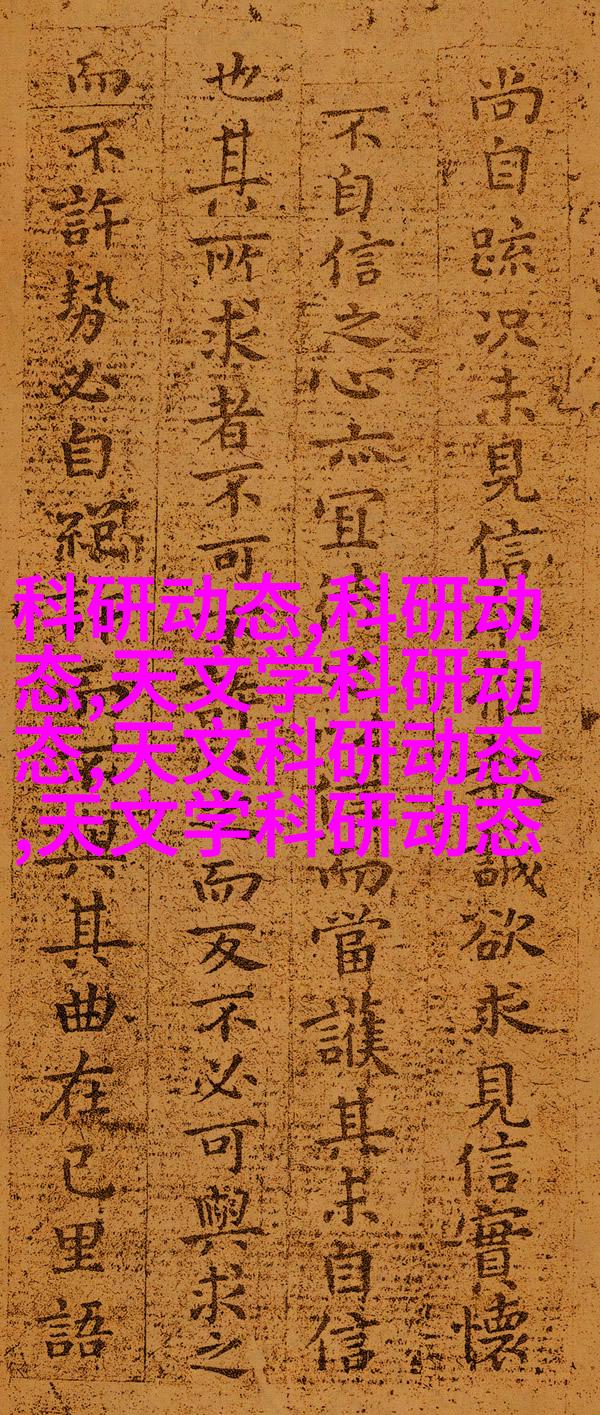 尚自疏況未見信誠欲求見信實懷
不自信之心亦宜而當護其未自信
也其所求者不可而反不必可與求之
而不許勢必自絕其曲在已里語
科研动态,科研动
态,天文学科研动
态,天文科研动态
,天文学科研动态